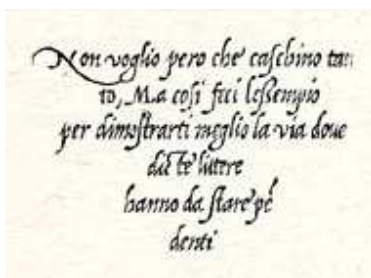 Non voglio pero che caschino tan
to, Ma cosi feci lessempio
per dimostrarti meglio la via doue
dicte littere
hanno da stare pẽ
denti